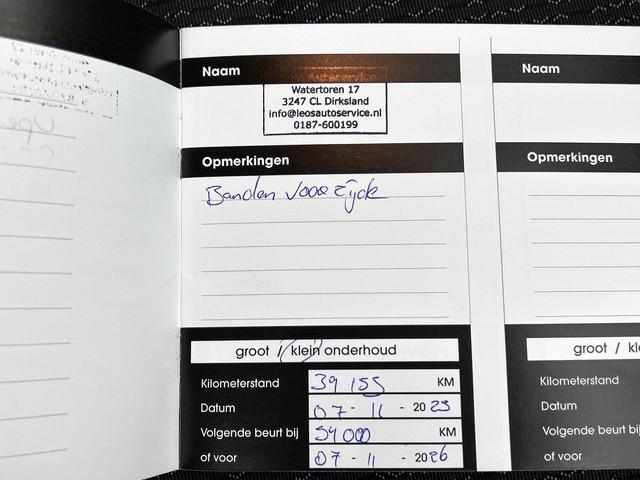 Naam
Autoservice
Watertoren 17
3247 CL Dirksland
info@leosautoservice.nl
0187-600199
Opmerkingen
Banden voorzijde
groot / klein onderhoud
Kilometerstand 39 155 KM
Datum 07 - 11 - 2023
Volgende beurt bij 54000 KM
of voor 07 - 11 - 2026
Naam
Opmerkingen
groot / kl
Kilometerstand
Datum
Volgende beurt bij
of voor